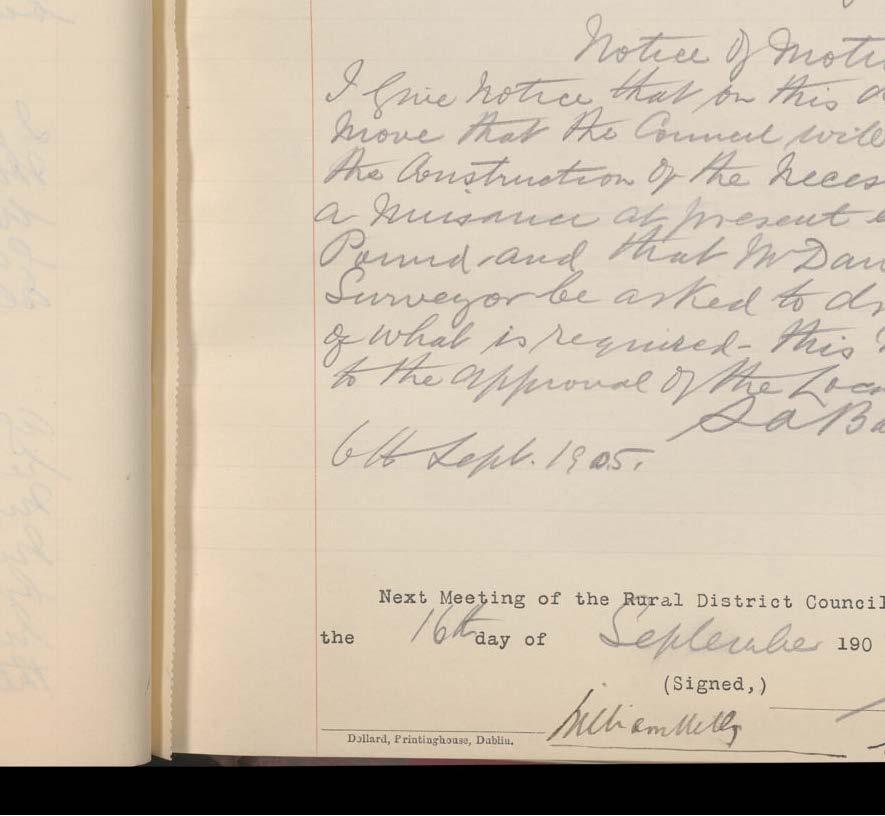 Notice of Moti
I give Notice that on this d
Move that the Council will
the Construction of the Neces
a Nuisance at present e
Pound and that Mr Dan
Surveyor be asked to dr
of what is required - this
to the approval of the Loca
S A Ba
6th Sept. 1905.
Next Meeting of the Rural District Council
the 16th day of September 190
(Signed,)
William
Dollard, Printinghouse, Dublin.